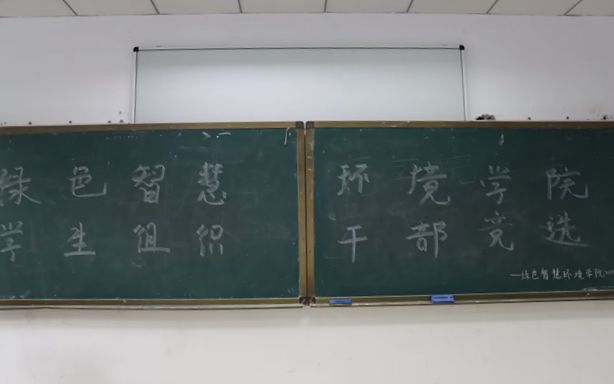 绿色智慧 环境学院
学生组织 干部竞选
—绿色智慧环境学院